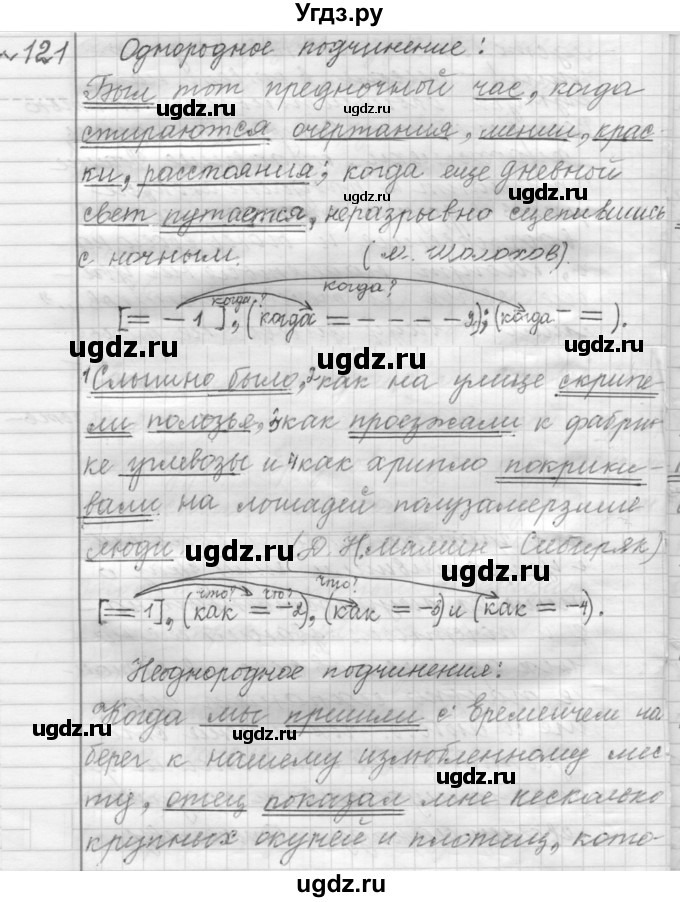 Угдз.ру
№121 Однородное подчинение:
Был тот предночный час, когда
стираются очертания, линии, крас-
ки, расстояния; когда еще дневной
свет путается, неразрывно сцепившись
с ночным. (М. Шолохов).
когда? когда?
[= – 1], (когда = – – – – 2); (когда – =).
1Слышно было, 2как на улице скрипе-
ли полозья, 3как проезжали к фабри-
ке углевозы и 4как хрипло покрики-
вали на лошадей полузамерзшие
люди (Д.Н.Мамин-Сибиряк)
что? что? что?
[= 1], (как = –2), (как = –3) и (как = –4).
Неоднородное подчинения:
Когда мы пришли с Времейчем на
берег к нашему излюбленному мес-
ту, отец показал мне несколько
крупных окуней и плотиц, кото-
ugdz.ru
ugdz.ru
ugdz.ru
ugdz.ru
ugdz.ru
ugdz.ru
ugdz.ru
ugdz.ru
ugdz.ru
ugdz.ru
ugdz.ru
ugdz.ru
ugdz.ru
ugdz.ru